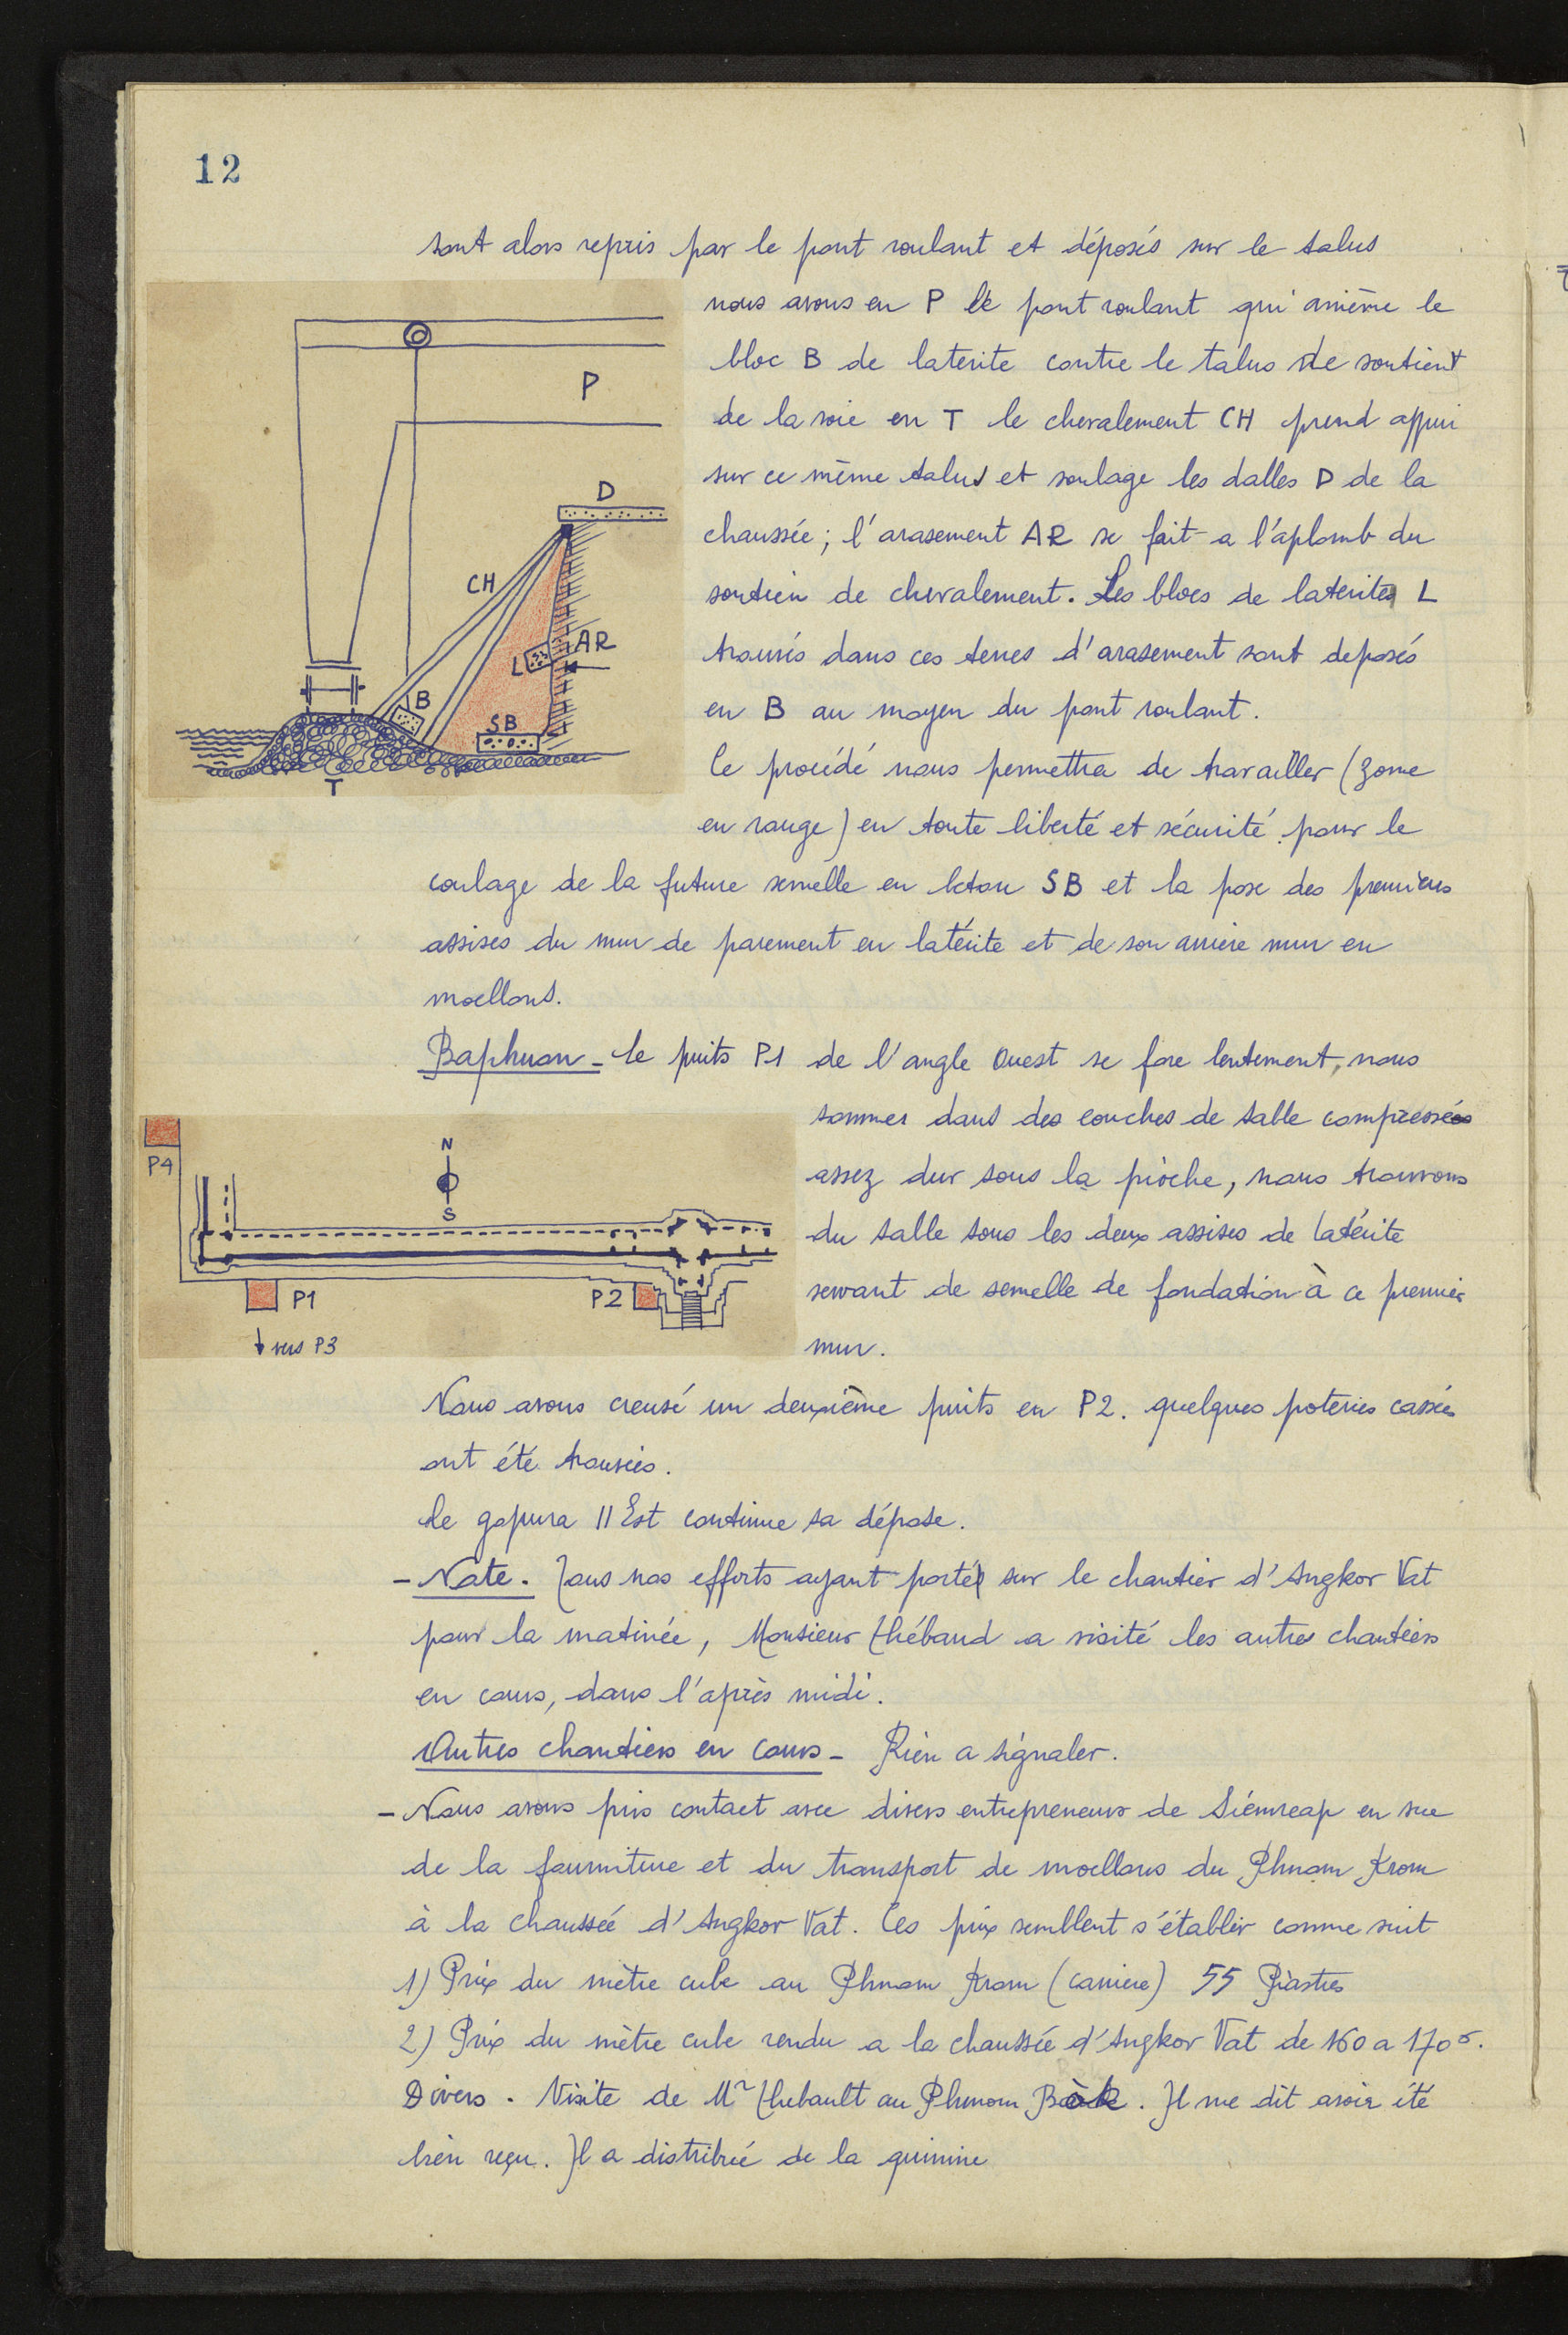 12
sont alors repris par le pont roulant et déposés sur le talus
nous avons en P le pont roulant qui amène le
bloc B de laterite contre le talus de soutient
de la voie en T le chevalement CH prend appui
sur ce même talus et soulage les dalles D de la
chaussée ; l'arasement AR se fait a l'aplomb du
soutien de chevalement. Les blocs de laterite L
trouvés dans ces terres d'arasement sont deposés
en B au moyen du pont roulant.
Ce procédé nous permettra de travailler (zone
en rouge) en toute liberté et sécurité pour le
coulage de la future semelle en beton SB et la pose des premiers
assises du mur de parement en latérite et de son arriere mur en
moellons.
P
D
CH
AR
L
B
SB
T
Baphuon - le puits P1 de l'angle Ouest se fore lentement, nous
sommes dans des couches de sable compressé
assez dur sous la pioche, nous trouvons
du sable sous les deux assises de latérite
servant de semelle de fondation à ce premier
mur.
P4
N
S
P1
P2
vers P3
Nous avons creusé un deuxième puits en P2. quelques poteries cassées
ont été trouvées.
Le gopura II Est continue sa dépose.
- Note. Tous nos efforts ayant porté sur le chantier d'Angkor Vat
pour la matinée, Monsieur Thébaud a visité les autres chantiers
en cours, dans l'après midi.
Autres chantiers en cours - Rien a signaler.
- Nous avons pris contact avec divers entrepreneurs de Siémreap en vue
de la fourniture et du transport de moellons du Phnom Krom
à la chaussée d'Angkor Vat. Ces prix semblent s'établir comme suit
1) Prix du mètre cube au Phnom Krom (carriere) 55 Piastres
2) Prix du mètre cube rendu a la chaussée d'Angkor Vat de 160 a 170
Divers. Visite de Mr Thebault au Phnom Bòk. Il me dit avoir été
bien reçu. Il a distribué de la quinine